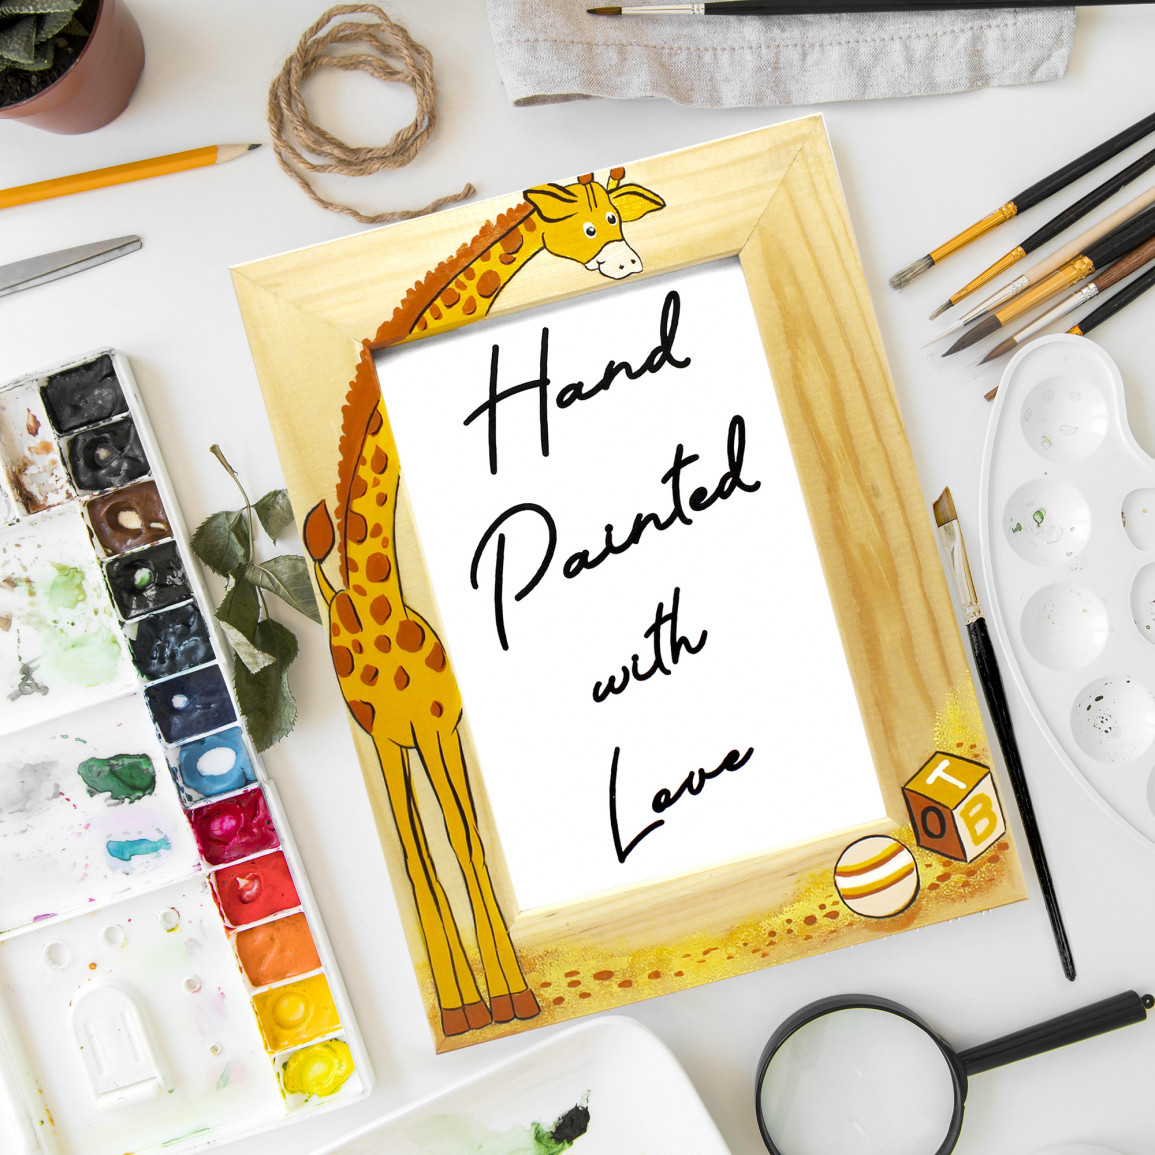 Hand
Painted
with
Love
T
O B